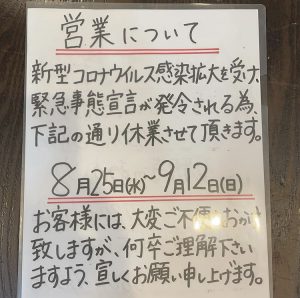 営業について
新型コロナウイルス感染拡大を受け、
緊急事態宣言が発令される為、
下記の通り休業させて頂きます。
8月25日(水)~9月12日(日)
お客様には、大変ご不便おかけ
致しますが、何卒ご理解下さい
ますよう、宜しくお願い申し上げます。